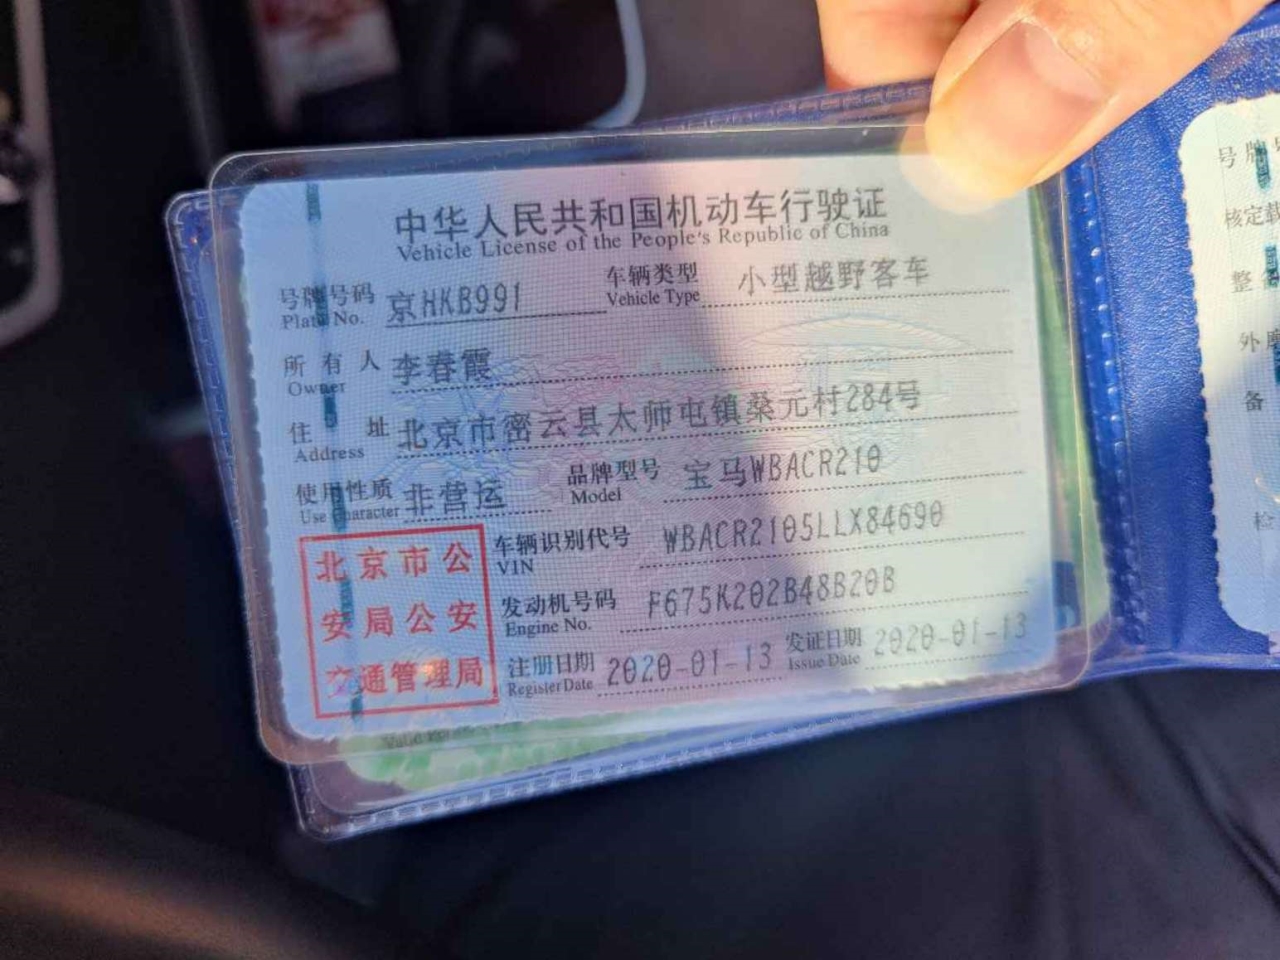 中华人民共和国机动车行驶证
Vehicle License of the People's Republic of China
号牌号码 京HKB991 车辆类型 小型越野客车
Plate No. Vehicle Type
所有人 李春霞
Owner
住址 北京市密云县太师屯镇桑元村284号
Address
使用性质 非营运 品牌型号 宝马WBACR210
Use Character Model
北京市公
安局公安
交通管理局
车辆识别代号 WBACR2105LLX84690
VIN
发动机号码 F675K202B48B20B
Engine No.
注册日期 2020-01-13 发证日期 2020-01-13
Register Date Issue Date
号牌
核定载
整
外
备
检